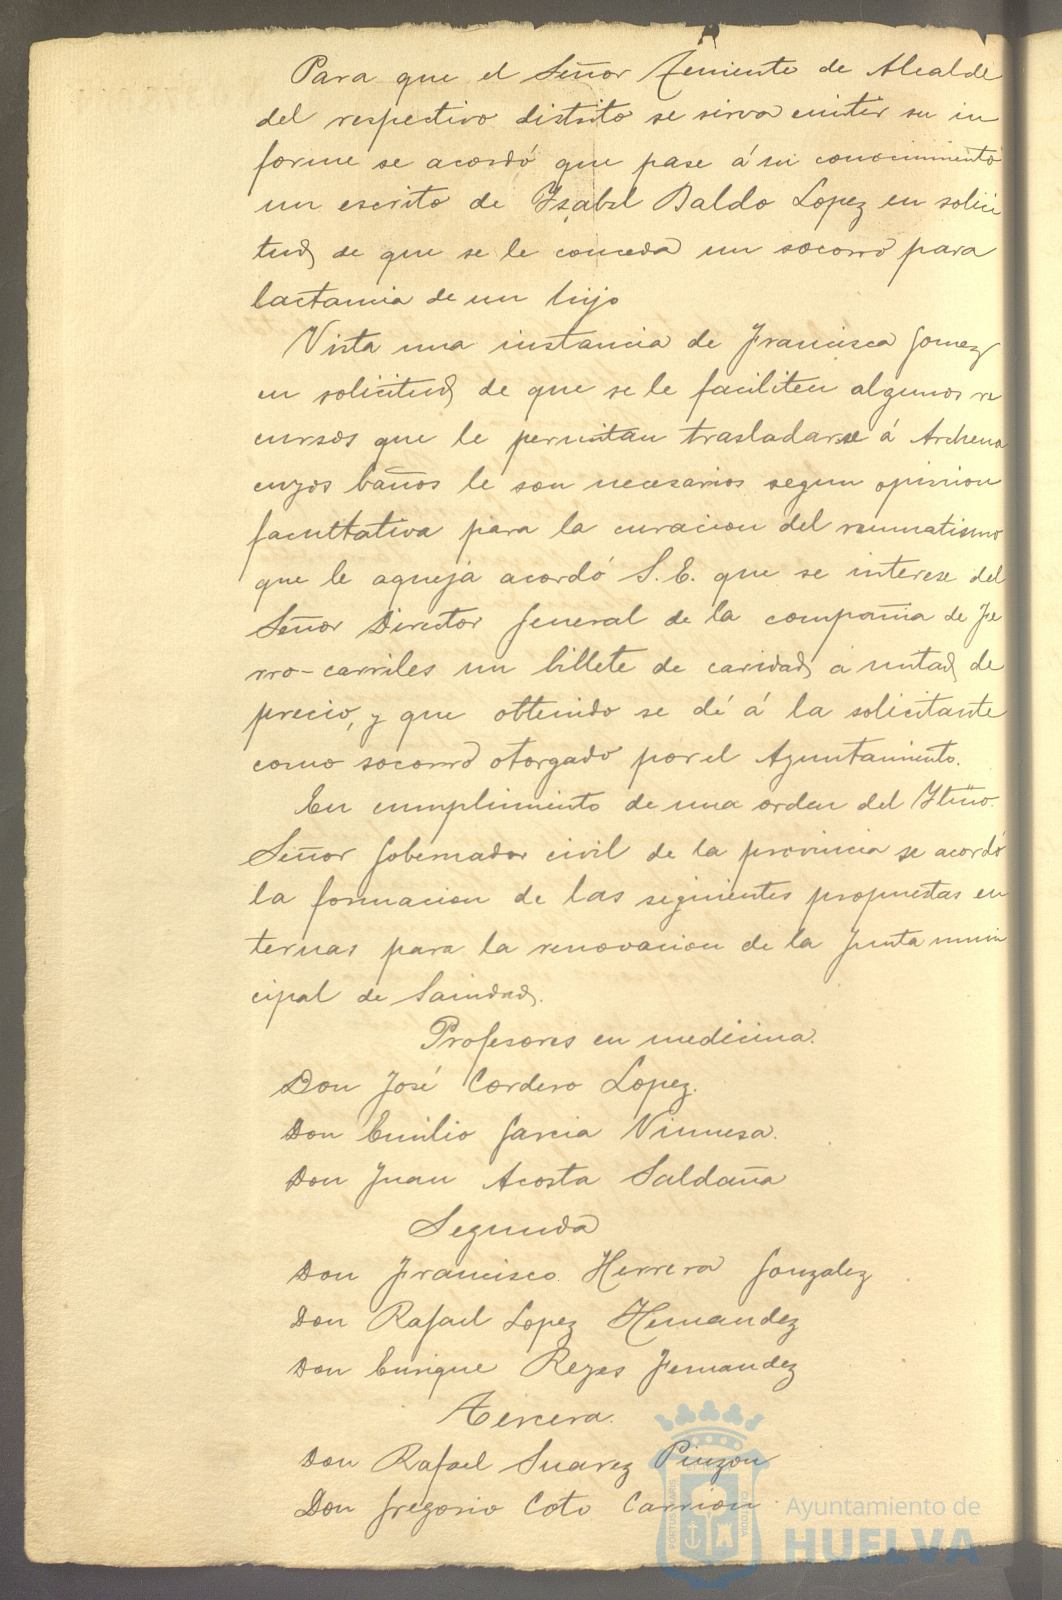 Para que el Señor Teniente de Alcalde
del respectivo distrito se sirva emitir su in
forme se acordó que pase á su conocimiento
un escrito de Ysabel Baldo Lopez en solici
tud de que se le conceda un socorro para
lactancia de un hijo
Vista una instancia de Francisca Gomez
en solicitud de que se le faciliten algunos re
cursos que le permitan trasladarse á Archena
cuyos baños le son necesarios segun opinion
facultativa para la curacion del reumatismo
que le aqueja acordó S.E. que se interese del
Señor Director General de la compañia de Fe
rro-carriles un billete de caridad á mitad de
precio, y que obtenido se dé á la solicitante
como socorro otorgado por el Ayuntamiento.
En cumplimiento de una orden del Yltño.
Señor Gobernador civil de la provincia se acordó
la formacion de las seguientes propuestas en
ternas para la renovacion de la Junta muni
cipal de Sanidad.
Profesores en medicina.
Don José Cordero Lopez.
Don Emilio Garcia Vinuesa.
Don Juan Acosta Saldaña
Segunda
Don Francisco Herrera Gonzalez
Don Rafael Lopez Hernandez
Don Enrique Reyes Fernandez
Tercera.
Don Rafael Suarez Pinzon
Don Gregorio Coto Carrion
Ayuntamiento de
HUELVA